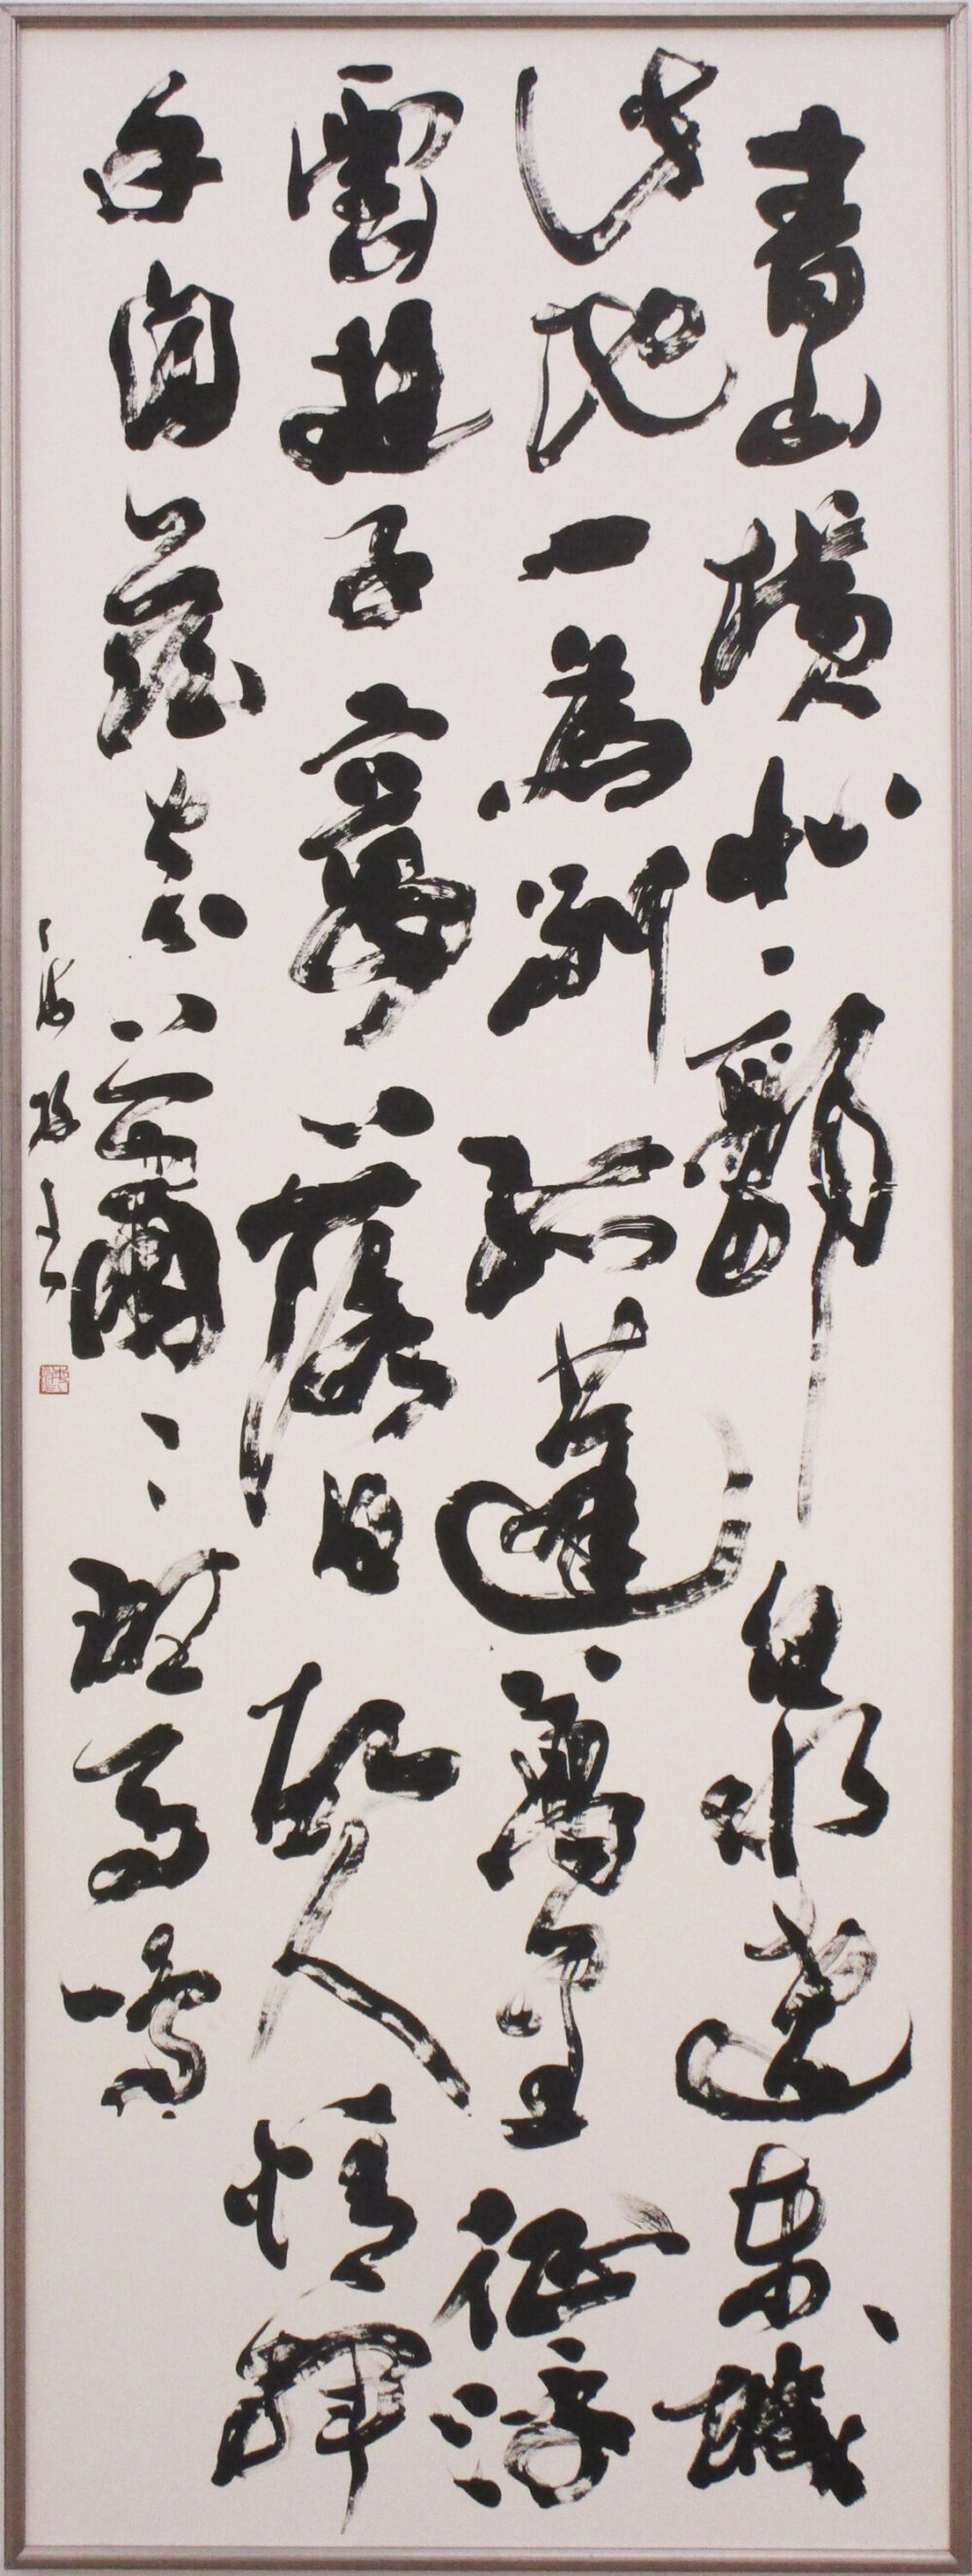 青山橫北郭白水遶東城
此地一為別孤蓬萬里征浮
雲遊子意落日故人情揮
手自茲去蕭々班馬鳴